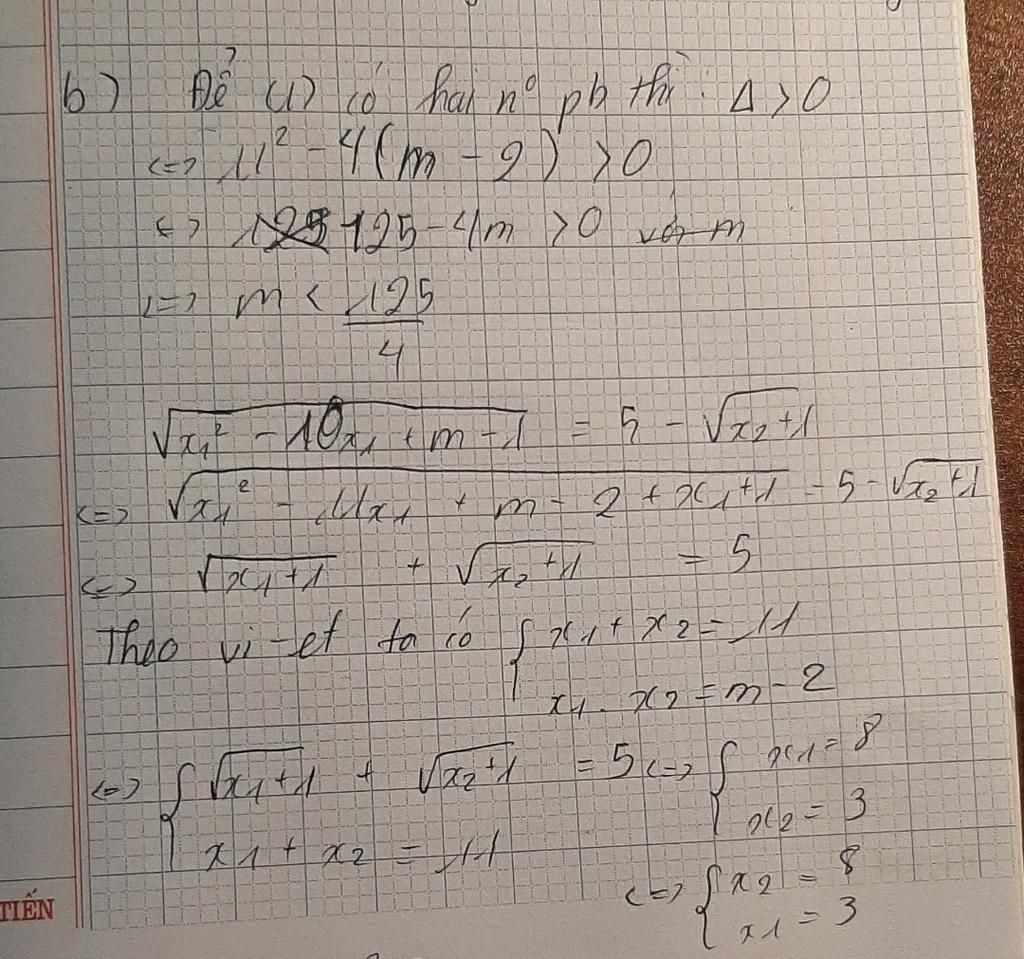 b) Để (1) có hai nº pb thì: Δ > 0
<=> 11² - 4(m - 2) > 0
<=> 125 - 4m > 0
<=> m < 125/4
√(x₁² - 10x₁ + m - 1) = 5 - √(x₂+1)
<=> √(x₁² - 11x₁ + m - 2 + x₁+1) = 5 - √(x₂+1)
<=> √(x₁+1) + √(x₂+1) = 5
Theo vi-et ta có { x₁ + x₂ = 11
x₁ . x₂ = m - 2
<=> { √(x₁+1) + √(x₂+1) = 5 <=> { x₁ = 8
x₁ + x₂ = 11 x₂ = 3
<=> { x₂ = 8
x₁ = 3
TIẾN